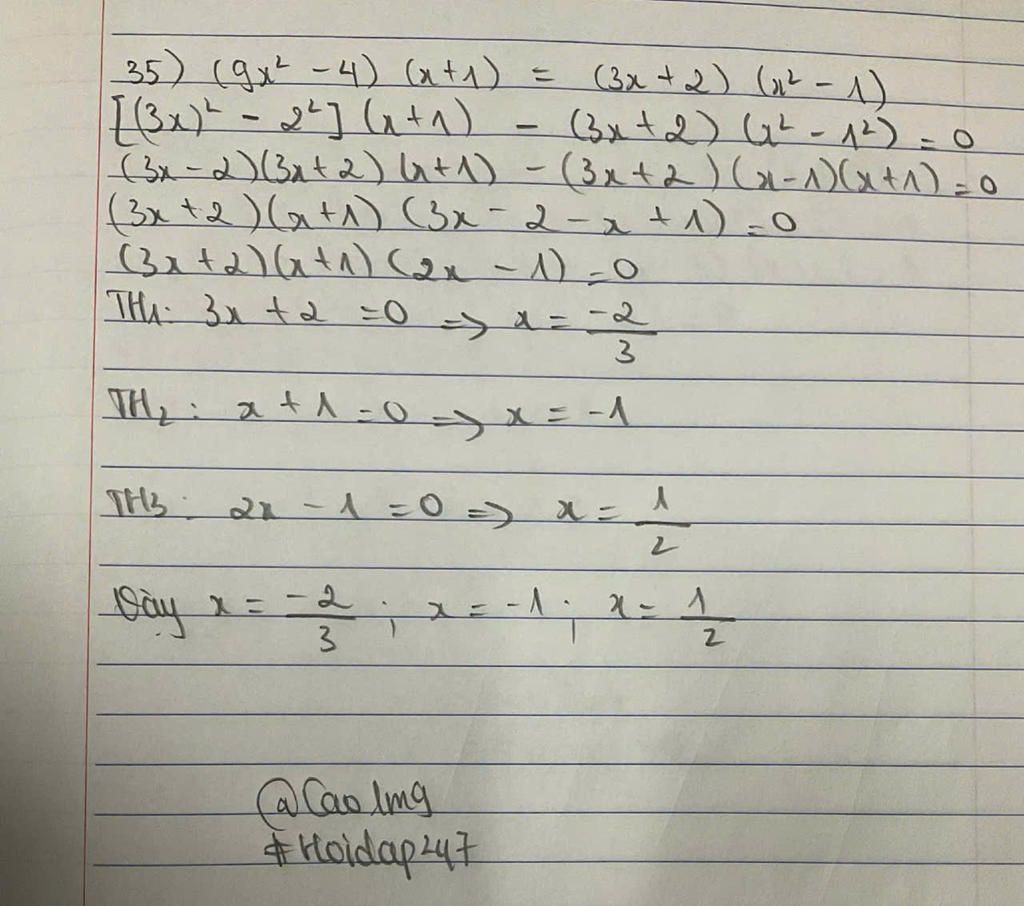 35) (9x² - 4) (x+1) = (3x + 2) (x² - 1)
[(3x)² - 2²] (x + 1) - (3x + 2) (x² - 1²) = 0
(3x - 2)(3x + 2) (x + 1) - (3x + 2) (x - 1)(x + 1) = 0
(3x + 2)(x + 1) (3x - 2 - x + 1) = 0
(3x + 2)(x + 1) (2x - 1) = 0
TH1: 3x + 2 = 0 => x = -2/3
TH2: x + 1 = 0 => x = -1
TH3: 2x - 1 = 0 => x = 1/2
Vậy x = -2/3 ; x = -1 ; x = 1/2
@Caolmg
#Hoidap247